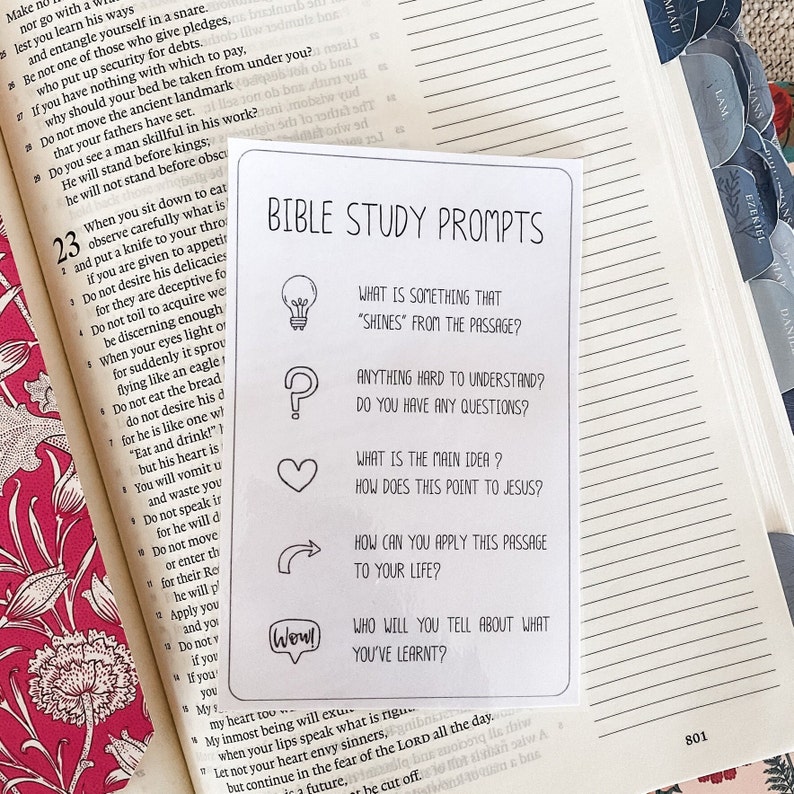 Make no
nor go with a
25 lest you learn his ways
and entangle yourself in a snare.
26 Be not one of those who give pledges,
who put up security for debts.
27 If you have nothing with which to pay,
why should your bed be taken from under you?
28 Do not move the ancient landmark
that your fathers have set.
29 Do you see a man skillful in his work?
He will stand before kings;
he will not stand before
23 When you sit down to eat
observe carefully what is
2 and put a knife to your
if you are given to
3 Do not desire his delicacies
for they are deceptive
4 Do not toil to acquire
be discerning enough
5 When your eyes light
for suddenly it
flying like an eagle
6 Do not eat the bread
do not desire his
7 for he is like one
"Eat and drink!"
but his heart is
8 You will vomit
and waste your
9 Do not speak in
for he will
10 Do not move
or enter
11 for their
he will
12 Apply
and
13 Do not
if
14 If
15 My
my heart too
16 My inmost being will
when your lips speak what is
17 Let not your heart envy sinners,
but continue in the fear of the LORD all the day.
18 is a future,
be cut off.
BIBLE STUDY PROMPTS
WHAT IS SOMETHING THAT
"SHINES" FROM THE PASSAGE?
ANYTHING HARD TO UNDERSTAND?
DO YOU HAVE ANY QUESTIONS?
WHAT IS THE MAIN IDEA ?
HOW DOES THIS POINT TO JESUS?
HOW CAN YOU APPLY THIS PASSAGE
TO YOUR LIFE?
Wow!
WHO WILL YOU TELL ABOUT WHAT
YOU'VE LEARNT?
801
LAM.
EZEKIEL
DANIEL